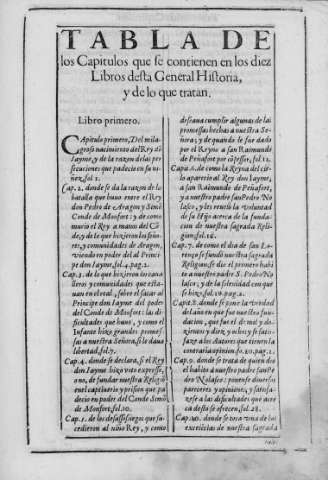 TABLA DE
los Capitulos que se contienen en los diez
Libros desta General Historia,
y de lo que tratan.
Libro primero.
CApitulo primero, Del mila-
groso nacimiento del Rey dõ
Iayme, y de la razon de las per
secuciones que padecio en su ni
ñez, fol. 1.
Cap. 2. donde se da la razon de la
batalla que huuo entre el Rey
don Pedro de Aragon, y Simõ
Conde de Monfort: y de como
murio el Rey a manos del Cõ-
de, y de lo que hizieron los seño-
res, y comunidades de Aragon,
viendo en poder del al Princi
pe don Iayme, fol. 4. pag. 2.
Cap. 3. de lo que hizieron los rica
hombres y comunidades que esta-
uan en
sobre el sacar al
Principe don Iayme del poder
del Conde de Monfort: las di-
ficultades que huuo, y como el
Infante hizo grandes promes-
sas a nuestra Señora, si le daua
libertad, fol. 7.
Cap. 4. donde se declara, si el Rey
don Iayme hizo voto expresso,
o no, de fundar nuestra Religiõ
en el captiuerio y prision que pa
decio en poder del Conde Simõ
de Monfort, fol. 10.
Cap. 5. de los desassosiegos que su-
cedieron al niño Rey, y como
deseaua cumplir algunas de las
promessas hechas a nuestra Se-
ñora; y de quando le fue dado
por el Reyno a san Raimundo
de Peñafort por cõfessor, fol. 12.
Cap. 6. de como la Reyna del cie-
lo aparecio al Rey don Iayme,
a san Raimundo de Peñafort,
y a nuestro padre san Pedro No
lasco, y les reuelò la voluntad
de su Hijo acerca de la funda-
cion de nuestra sagrada Reli-
gion, fol. 16.
Cap. 7. de como el dia de san Lo-
renço se fundò nuestra sagrada
Religion, se dio el primero habi
to a nuestro padre S. Pedro No
lasco, y de la solenidad con que
se hizo, fol. 18. pag. 2.
Cap. 8. donde se pone la verdad
del año en que fue nuestra fun-
dacion, que fue el de mil y do-
zientos y diez y ocho; y se satis-
faze a los Autores que tienen la
contraria opinion, fol. 20. pag. 2.
Cap. 9. donde se trata de quien dio
el habito a nuestro padre san Pe
dro Nolasco: ponense diuersos
pareceres y opiniones, y satis-
faze se a las dificultades que acer
ca desto se ofrecen, fol. 28.
Cap. 10. donde se toca vna de las
excelencias de nuestra sagrada